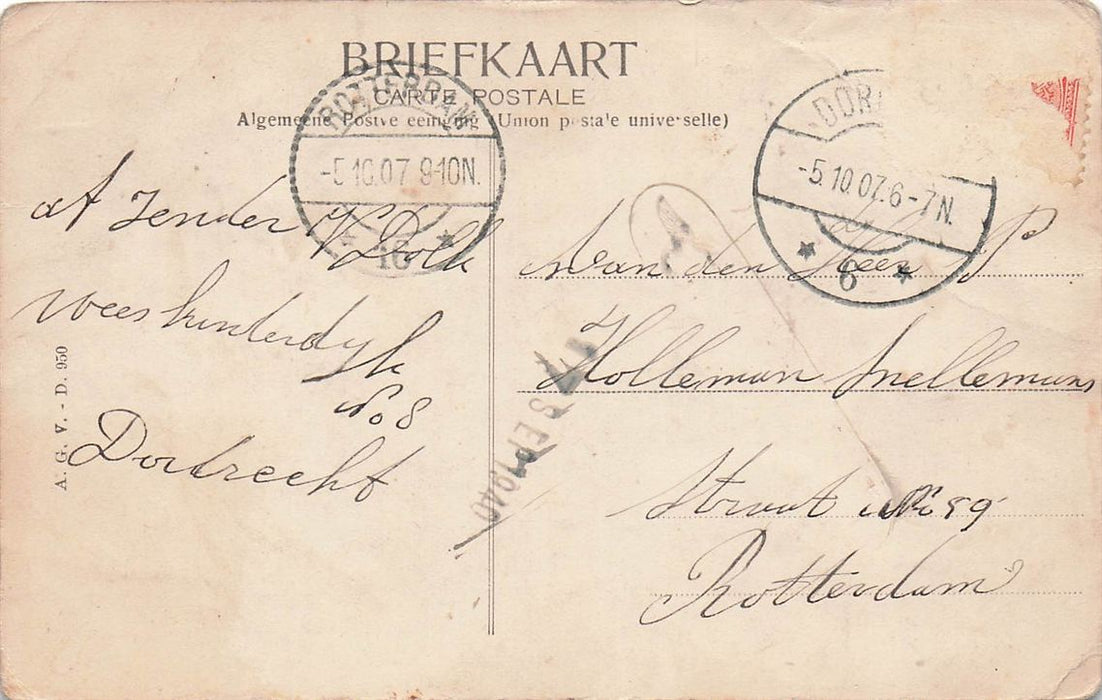 BRIEFKAART
CARTE POSTALE
Algemeene Postvereeniging (Union postale universelle)
ROTTERDAM
-5.10.07 9-10N.
10
DOR
-5.10.07.6-7N.
6
Afzender
weeskinderdyk
No 8
Dordrecht
A. G. V. - D. 950
SEP 1940
Aan den Heer P
Holleman Snellemans
Straat No 59
Rotterdam